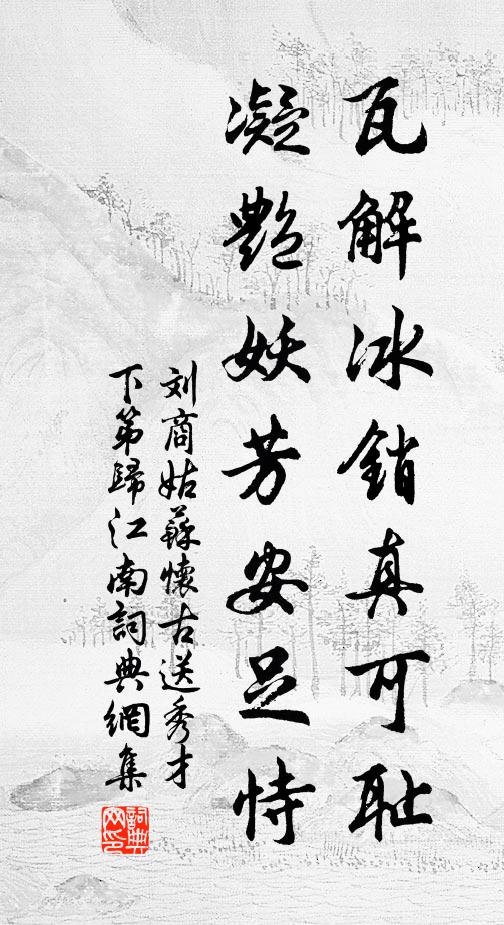 瓦解冰銷真可耻
凝艷妖芳安足恃
刘商姑蘇懷古送秀才
下第歸江南詞典網集
詞典
网印